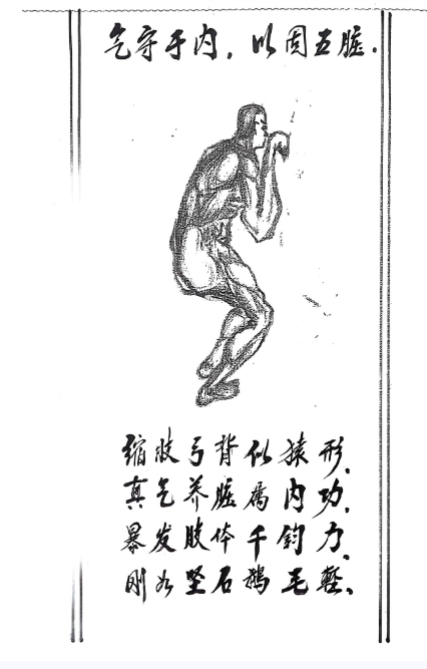 气守于内，以固五脏.
缩肢弓背似猿形.
真气养脏为内功.
暴发肢体千钧力.
刚如坚石鹅毛轻.